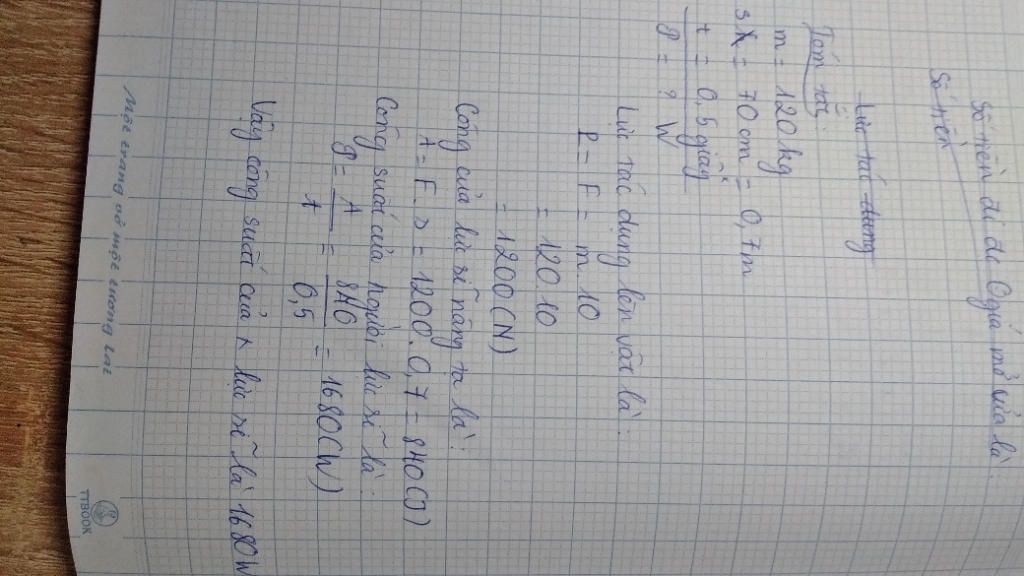 Số nến đi để Ogiá mở của là:
Số nến
Lực tác dụng
Tóm tắt:
m = 120 kg
s = 70 cm = 0,7m
t = 0,5 giây
P = ? W
Lực tác dụng lên vật là:
P = F = m. 10
= 120. 10
= 1200 (N)
Công của lực sĩ nâng tạ là:
A = F. s = 1200. 0,7 = 840 (J)
Công suất của người lực sĩ là:
P = A/t = 840/0,5 = 1680 (W)
Vậy công suất của 1 lực sĩ là 1680W
Một trang vở một tương lai
TTBOOK